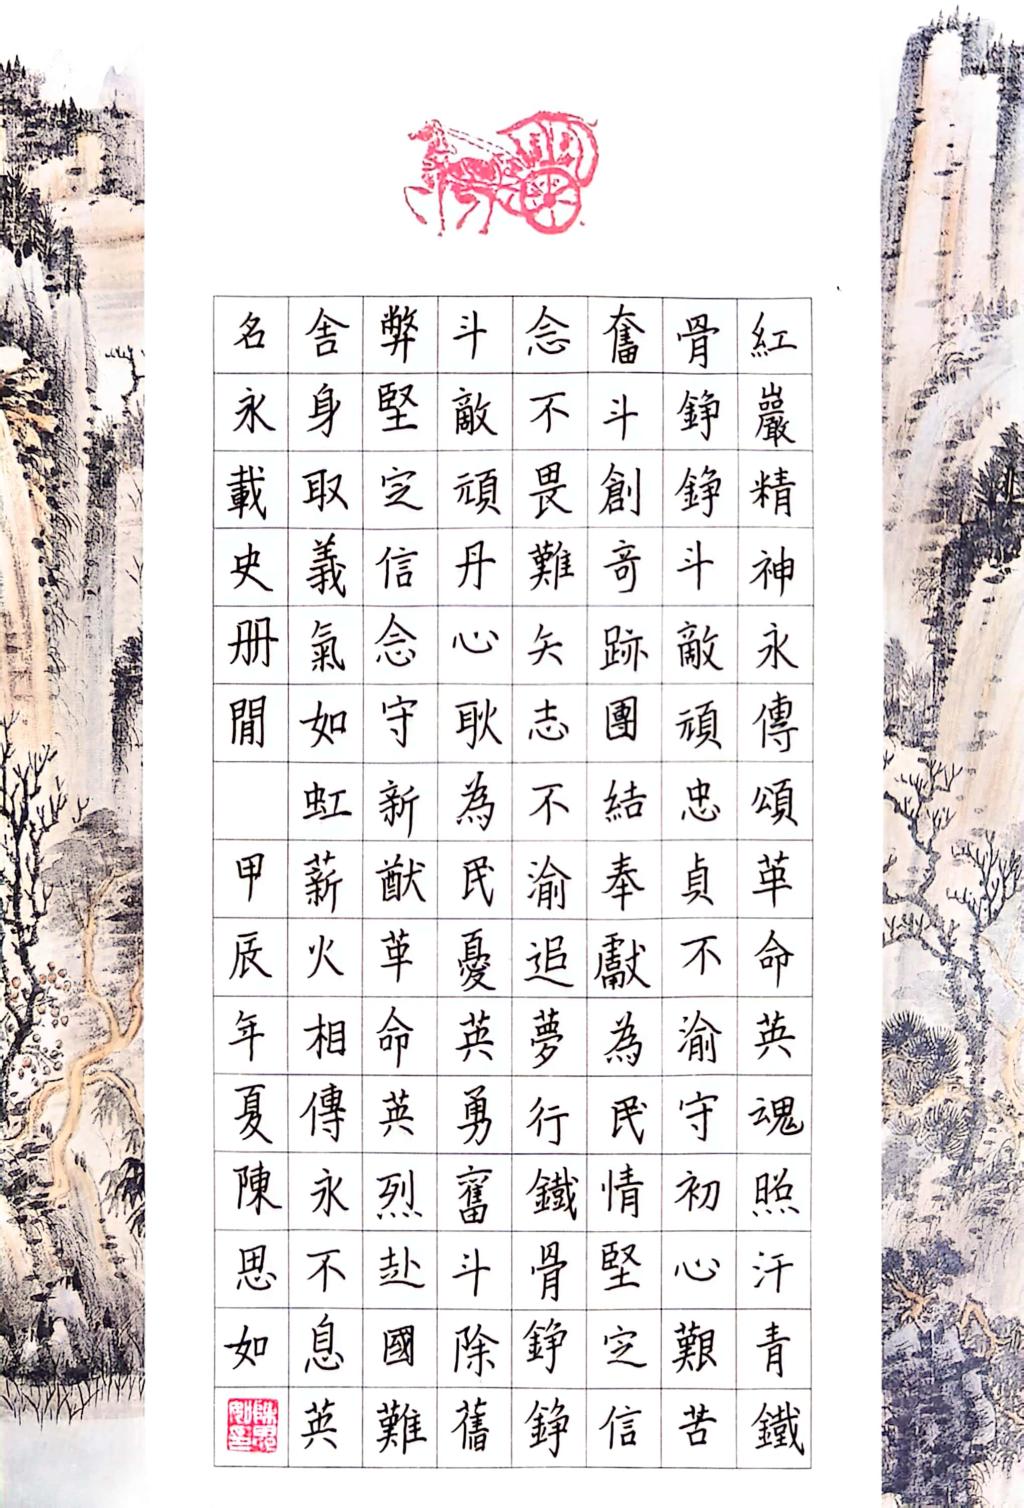 紅巖精神永傳頌革命英魂照汗青鐵
骨錚錚斗敵頑忠貞不渝守初心艱苦
奮斗創奇跡團結奉獻為民情堅定信
念不畏難矢志不渝追夢行鐵骨錚錚
斗敵頑丹心耿為民憂英勇奮斗除舊
弊堅定信念守新猷革命英烈赴國難
舍身取義氣如虹薪火相傳永不息英
名永載史册間
甲辰年夏陳思如